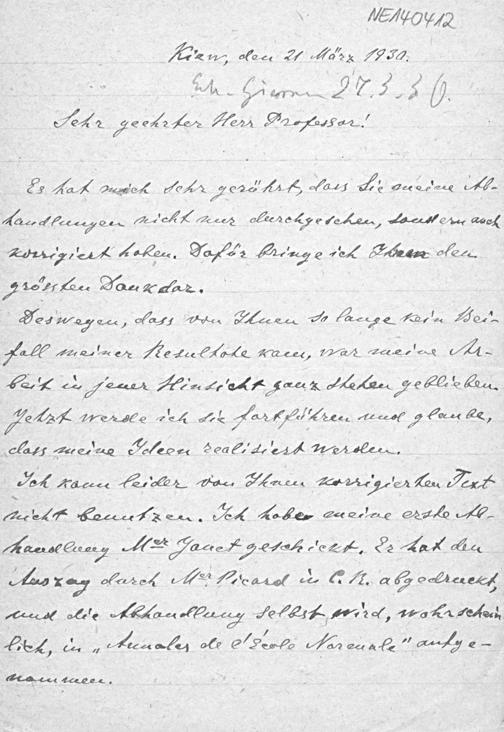 NE140412
Kiew, den 21 März 1930.
27.3.30.
Sehr geehrter Herr Professor!
Es hat mich sehr gerührt, dass Sie meine Ab-
handlungen nicht nur durchgesehen, sondern auch
korrigiert haben. Dafür bringe ich Ihnen den
grössten Dank dar.
Deswegen, dass von Ihnen so lange kein Bei-
fall meiner Resultate kam, war meine Ar-
beit in jener Hinsicht ganz stehen geblieben.
Jetzt werde ich sie fortführen und glaube,
dass meine Ideen realisiert werden.
Ich kann leider von Ihnen korrigierten Text
nicht benutzen. Ich habe meine erste Ab-
handlung Mer Janet geschickt. Er hat den
Auszug durch Mer Picard in C.R. abgedruckt,
und die Abhandlung selbst wird, wahrschein
lich, in „Annales de l'École Normale" aufge-
nommen.